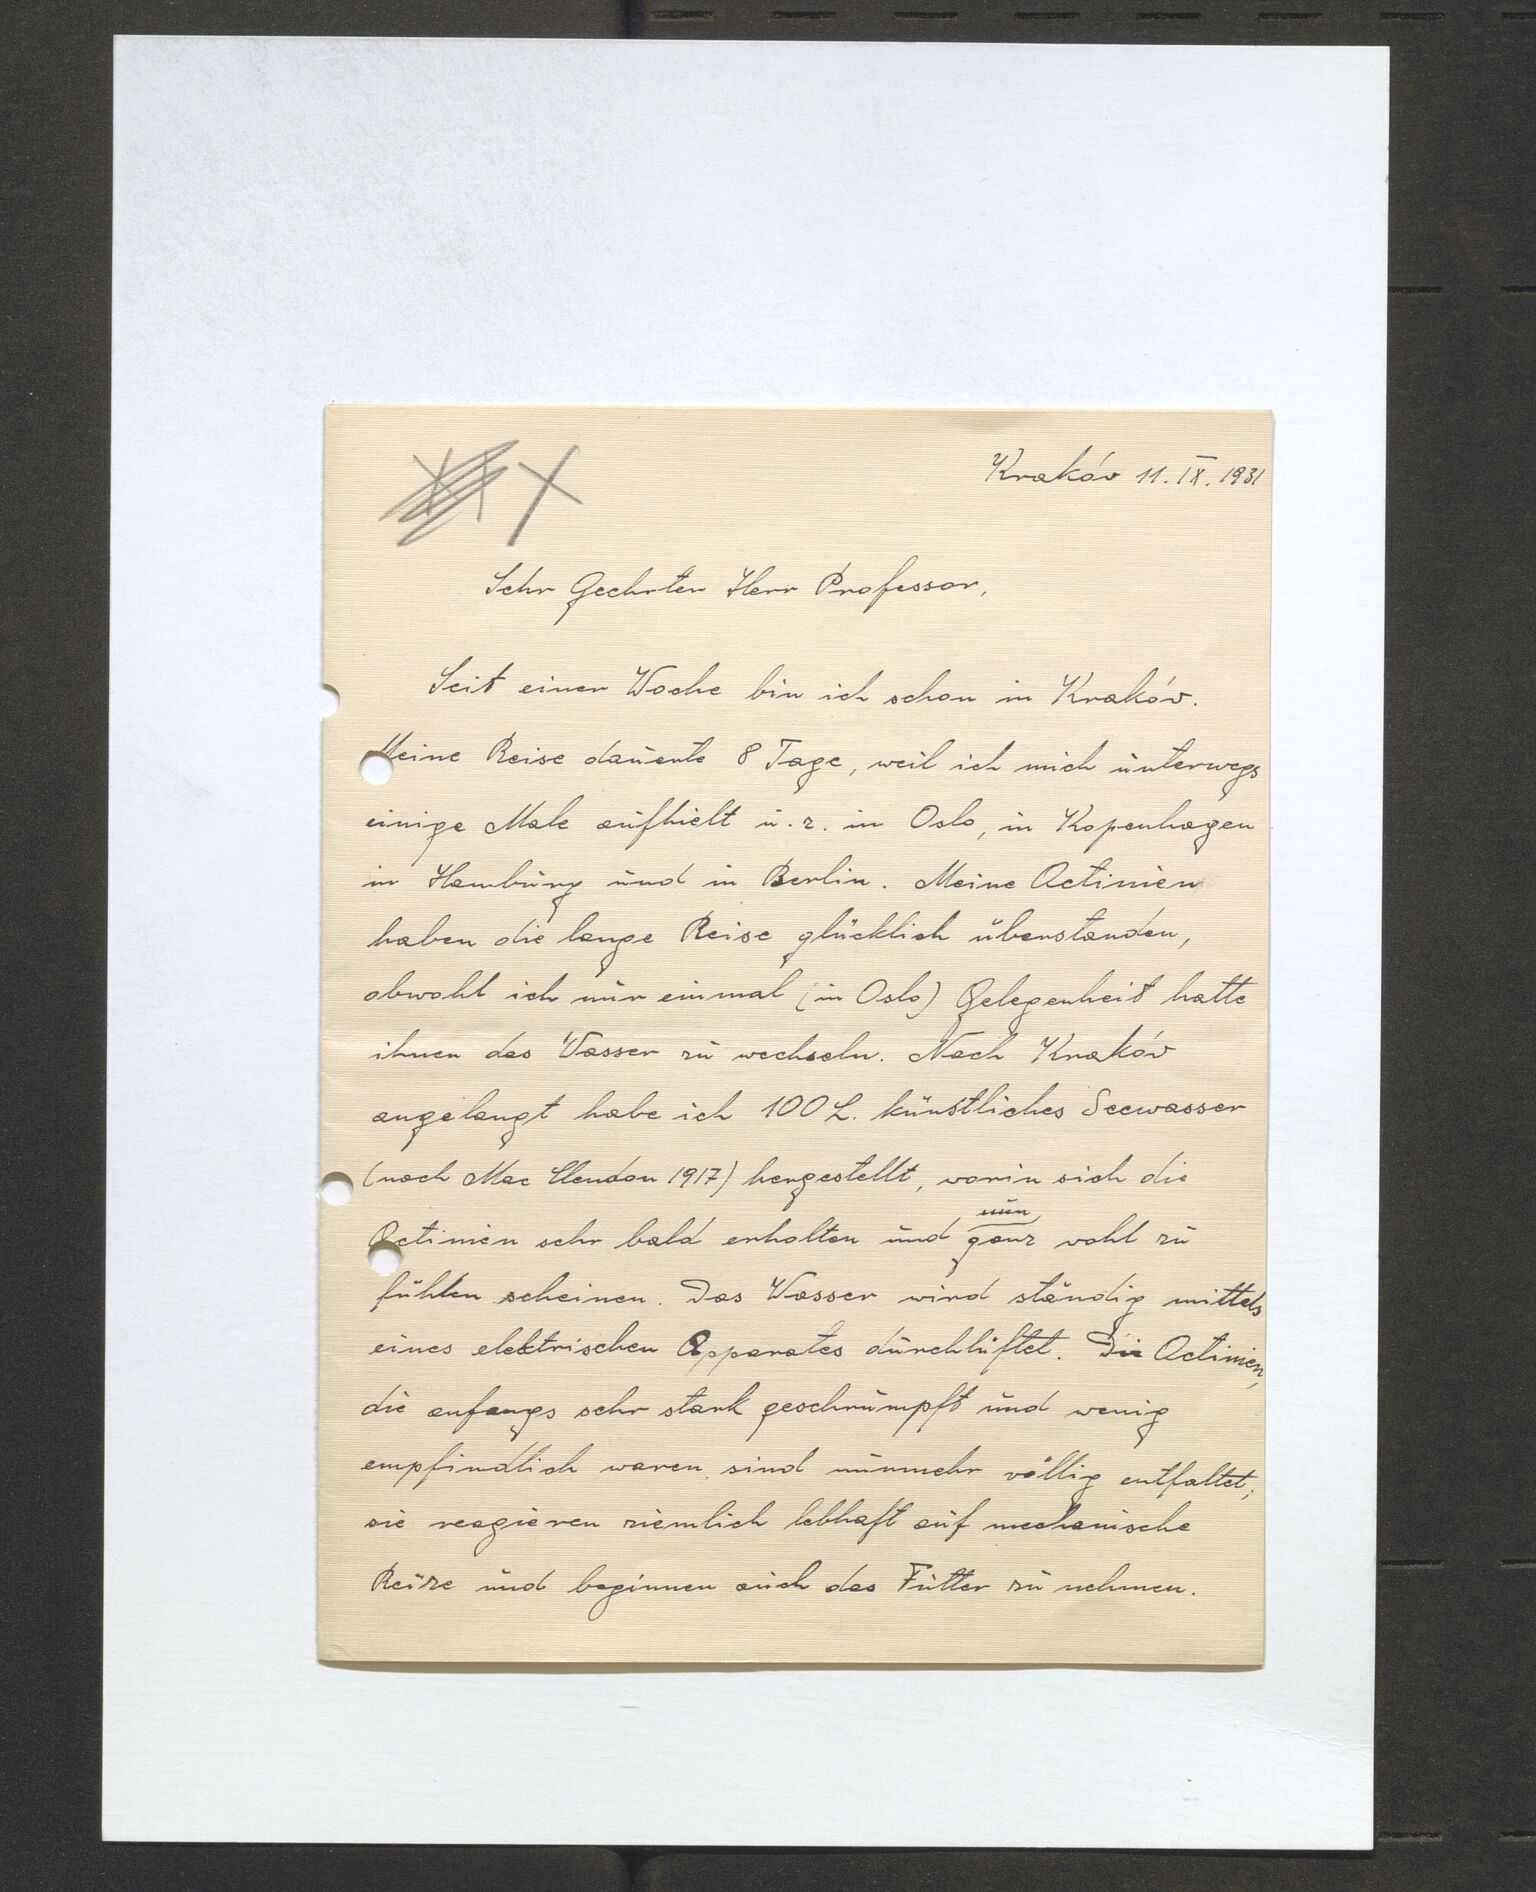 Kraków 11. IX. 1931
Sehr Geehrter Herr Professor,
Seit einer Woche bin ich schon in Kraków.
Meine Reise dauerte 8 Tage, weil ich mich unterwegs
einige Male aufhielt u. z. in Oslo, in Kopenhagen
in Hamburg und in Berlin. Meine Actinien
haben die lange Reise glücklich überstanden,
obwohl ich nur einmal (in Oslo) Gelegenheit hatte
ihnen das Wasser zu wechseln. Nach Kraków
angelangt habe ich 100 L. künstliches Seewasser
(nach Mac Clendon 1917) hergestellt, worin sich die
nun
Actinien sehr bald erholten und ganz wohl zu
fühlen scheinen. Das Wasser wird ständig mittels
eines elektrischen Apparates durchlüftet. Die Actinien,
die anfangs sehr stark geschrumpft und wenig
empfindlich waren, sind nunmehr völlig entfaltet;
sie reagieren ziemlich lebhaft auf mechanische
Reize und beginnen auch das Futter zu nehmen.